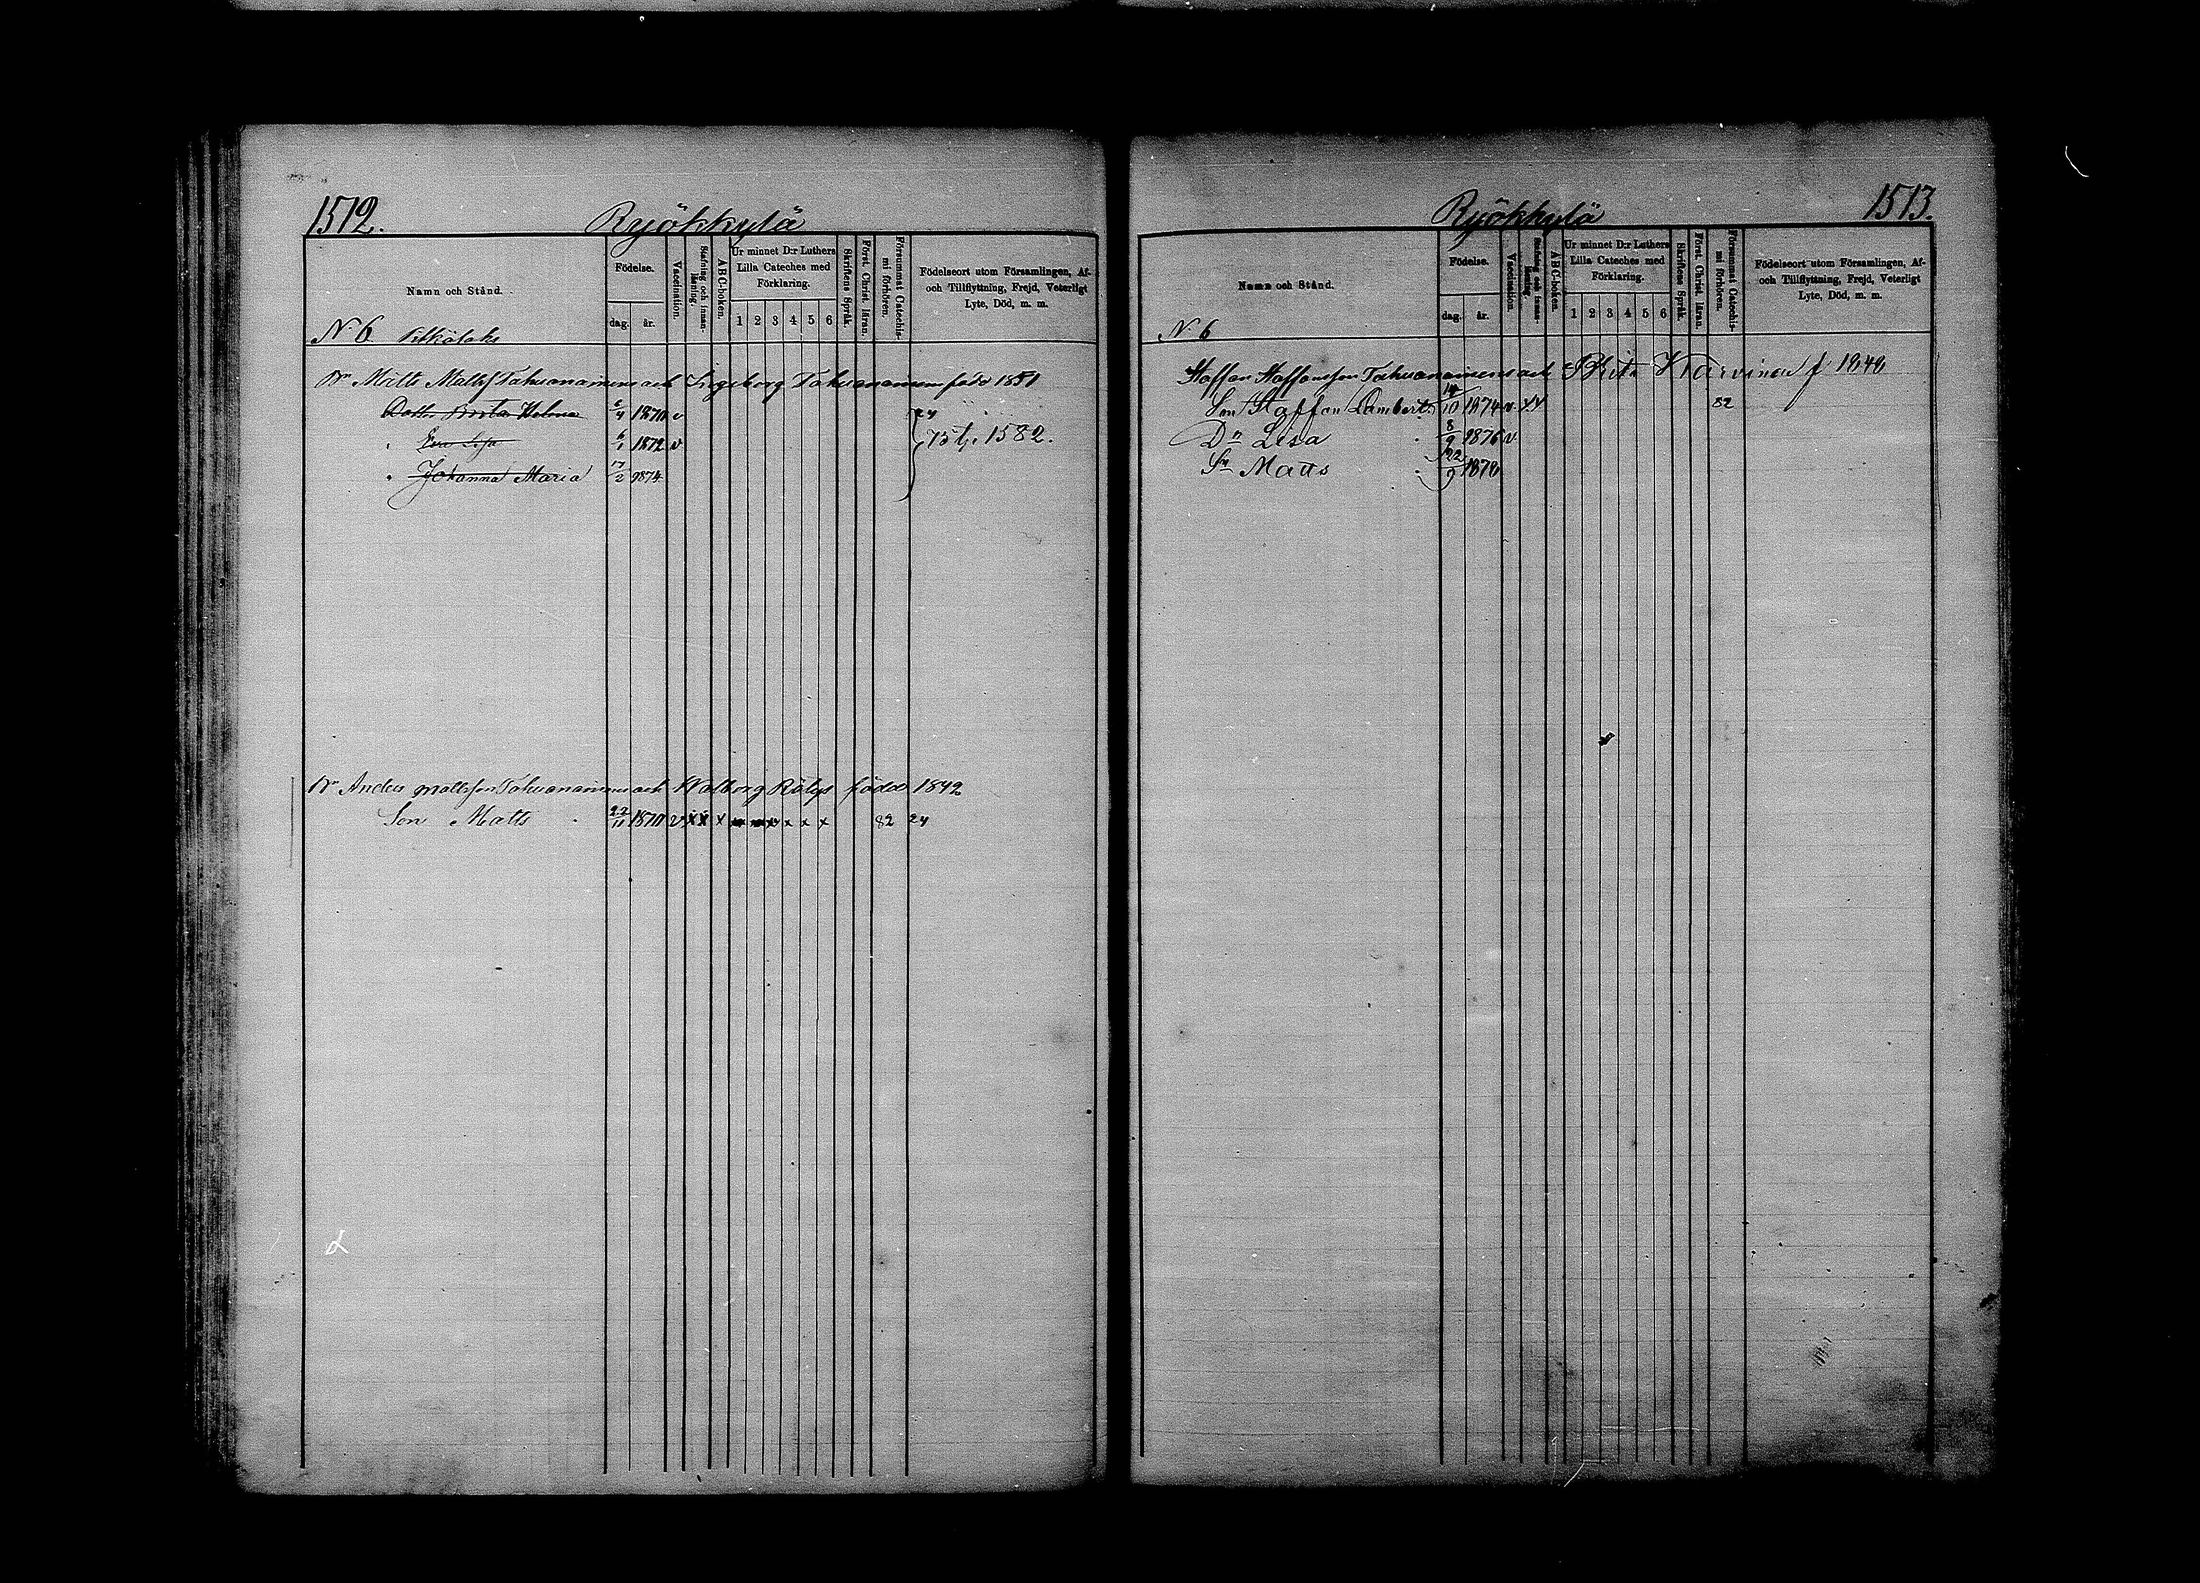 1512.
Ryökkylä
Namn och Stånd.
Födelse.
dag.
år.
Vaccination.
Stafning och innan-läsning.
ABC-boken.
Ur minnet D:r Luthers Lilla Cateches med Förklaring.
1 2 3 4 5 6
Skriftens Språk.
Först. Christ. läran.
Försummat Catechis-mi förhören.
Födelseort utom Församlingen, Af- och Tillflyttning, Frejd, Veterligt Lyte, Död, m. m.
N 6
Matts Tahvanainen och Ingeborg Tahvanainen född 1851
Helena 6/4 1870 v
Eva Lisa 6/1 1872 v
1582.
Johanna Maria 17/2 1874
Anders Mattsson Tahvanainen och Walborg född 1842
Son Matts 22/11 1870 v x x x x x x 82 24
1513.
Ryökkylä
Namn och Stånd.
Födelse.
dag.
år.
Vaccination.
Stafning och innan-läsning.
ABC-boken.
Ur minnet D:r Luthers Lilla Cateches med Förklaring.
1 2 3 4 5 6
Skriftens Språk.
Först. Christ. läran.
Försummat Catechis-mi förhören.
Födelseort utom Församlingen, Af- och Tillflyttning, Frejd, Veterligt Lyte, Död, m. m.
N 6
Staffan Staffansson Tahvanainen och Karvinen f 1848
Son Staffan Lambert 14/10 1874 v 82
Dr Lisa 8/9 1876 v
Sn Matts 22/9 1878